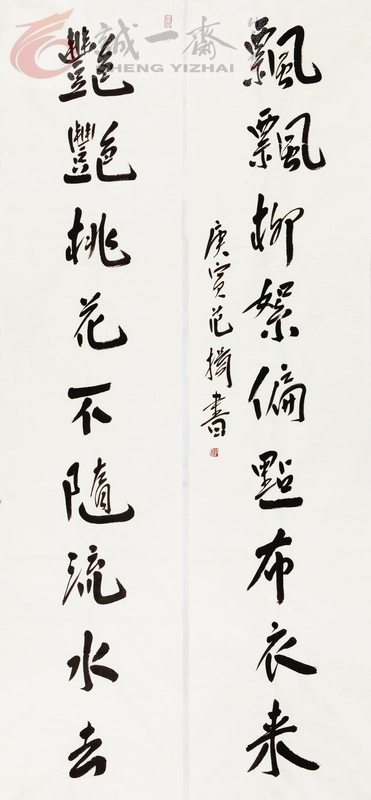 誠一齋
CHENG YIZHAI
飄飄柳絮偏點布衣来
艷艷桃花不隨流水去
庚寅范
書